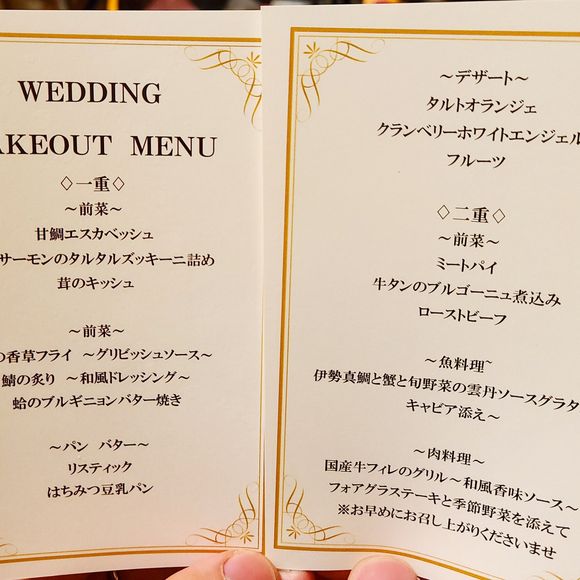 WEDDING
AKEOUT MENU
◇一重◇
～前菜～
甘鯛エスカベッシュ
サーモンのタルタルズッキーニ詰め
茸のキッシュ
～前菜～
の香草フライ ～グリビッシュソース～
鯖の炙り ～和風ドレッシング～
蛤のブルギニョンバター焼き
～パン バター～
リスティック
はちみつ豆乳パン
～デザート～
タルトオランジェ
クランベリーホワイトエンジェル
フルーツ
◇二重◇
～前菜～
ミートパイ
牛タンのブルゴーニュ煮込み
ローストビーフ
～魚料理~
伊勢真鯛と蟹と旬野菜の雲丹ソースグラタ
キャビア添え～
～肉料理～
国産牛フィレのグリル～和風香味ソース～
フォアグラステーキと季節野菜を添えて
※お早めにお召し上がりくださいませ